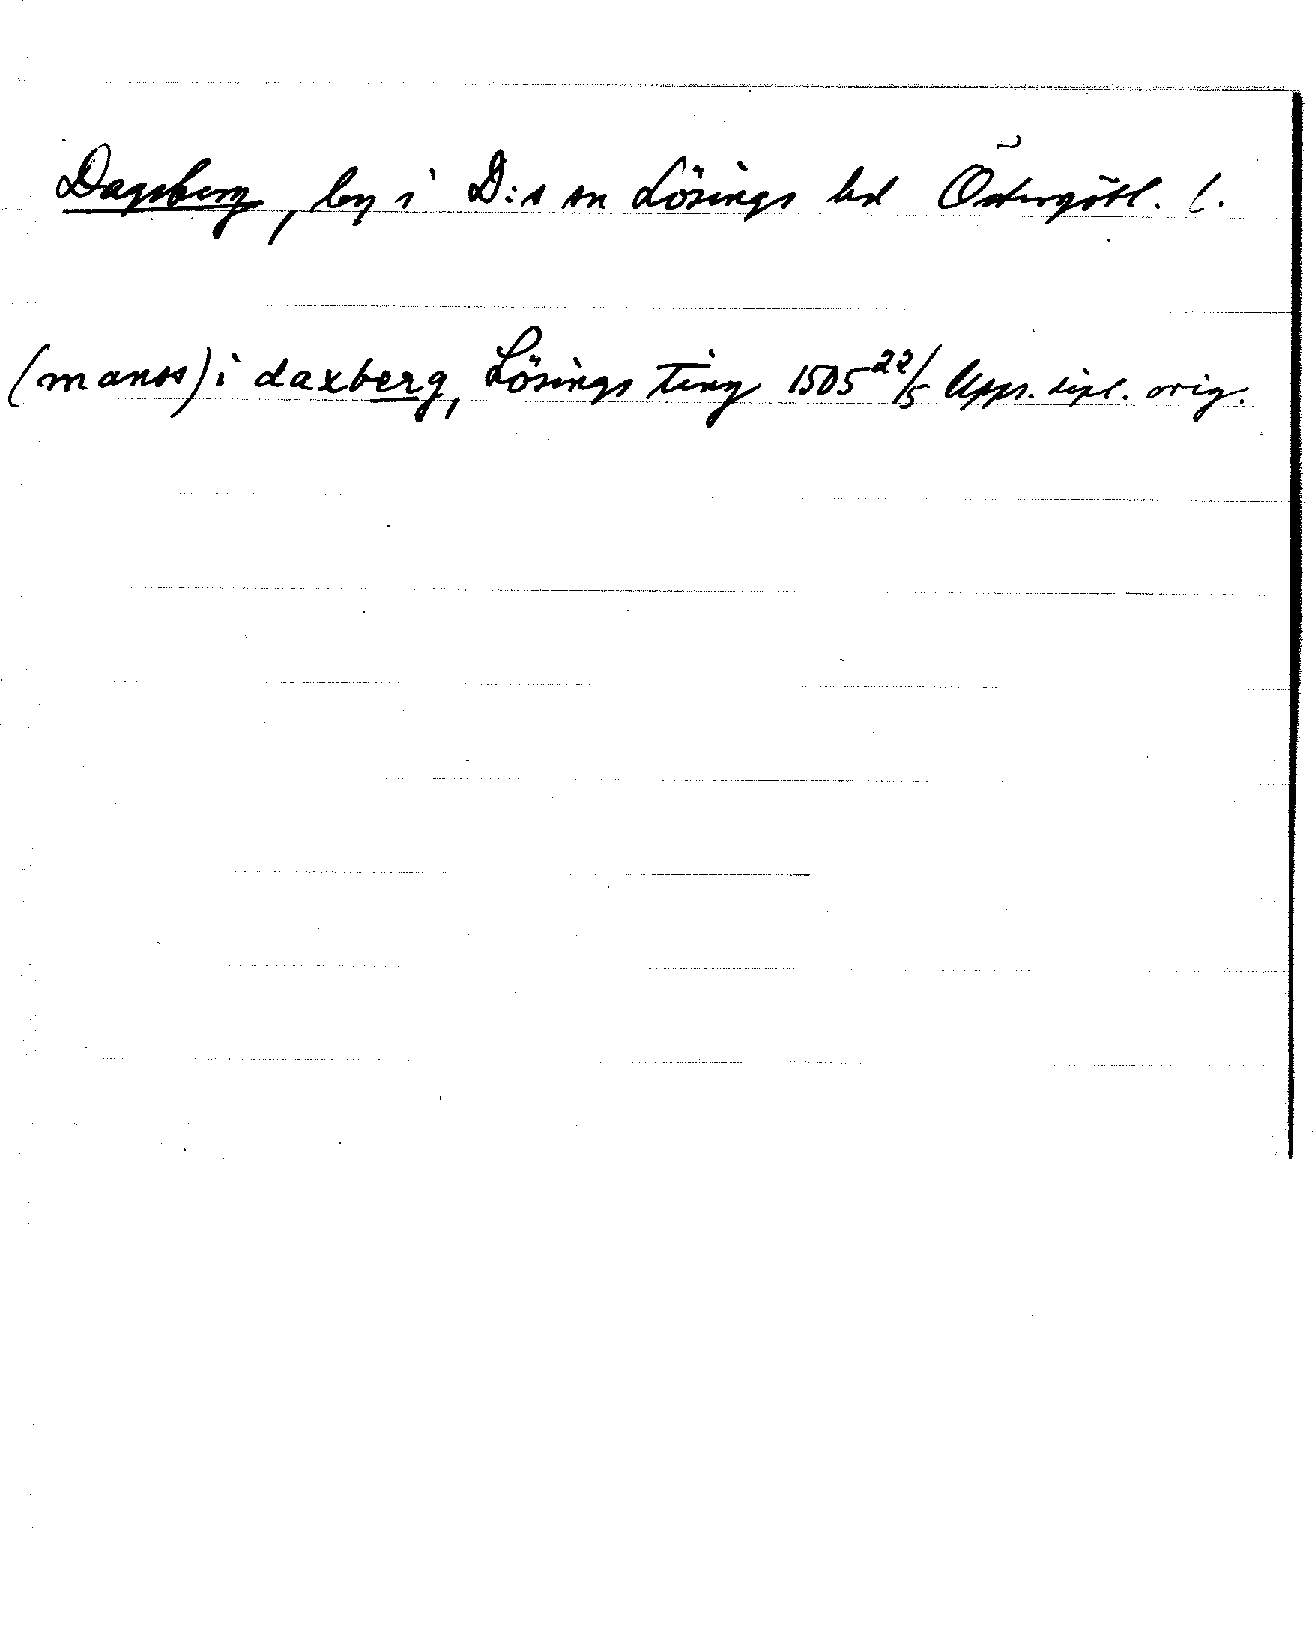 Dagsberg, by i D:s sn Lösings hd Östergötl. l.
(manss) i daxberg, Lösings ting 1505 22/5 Upps. dipl. orig.